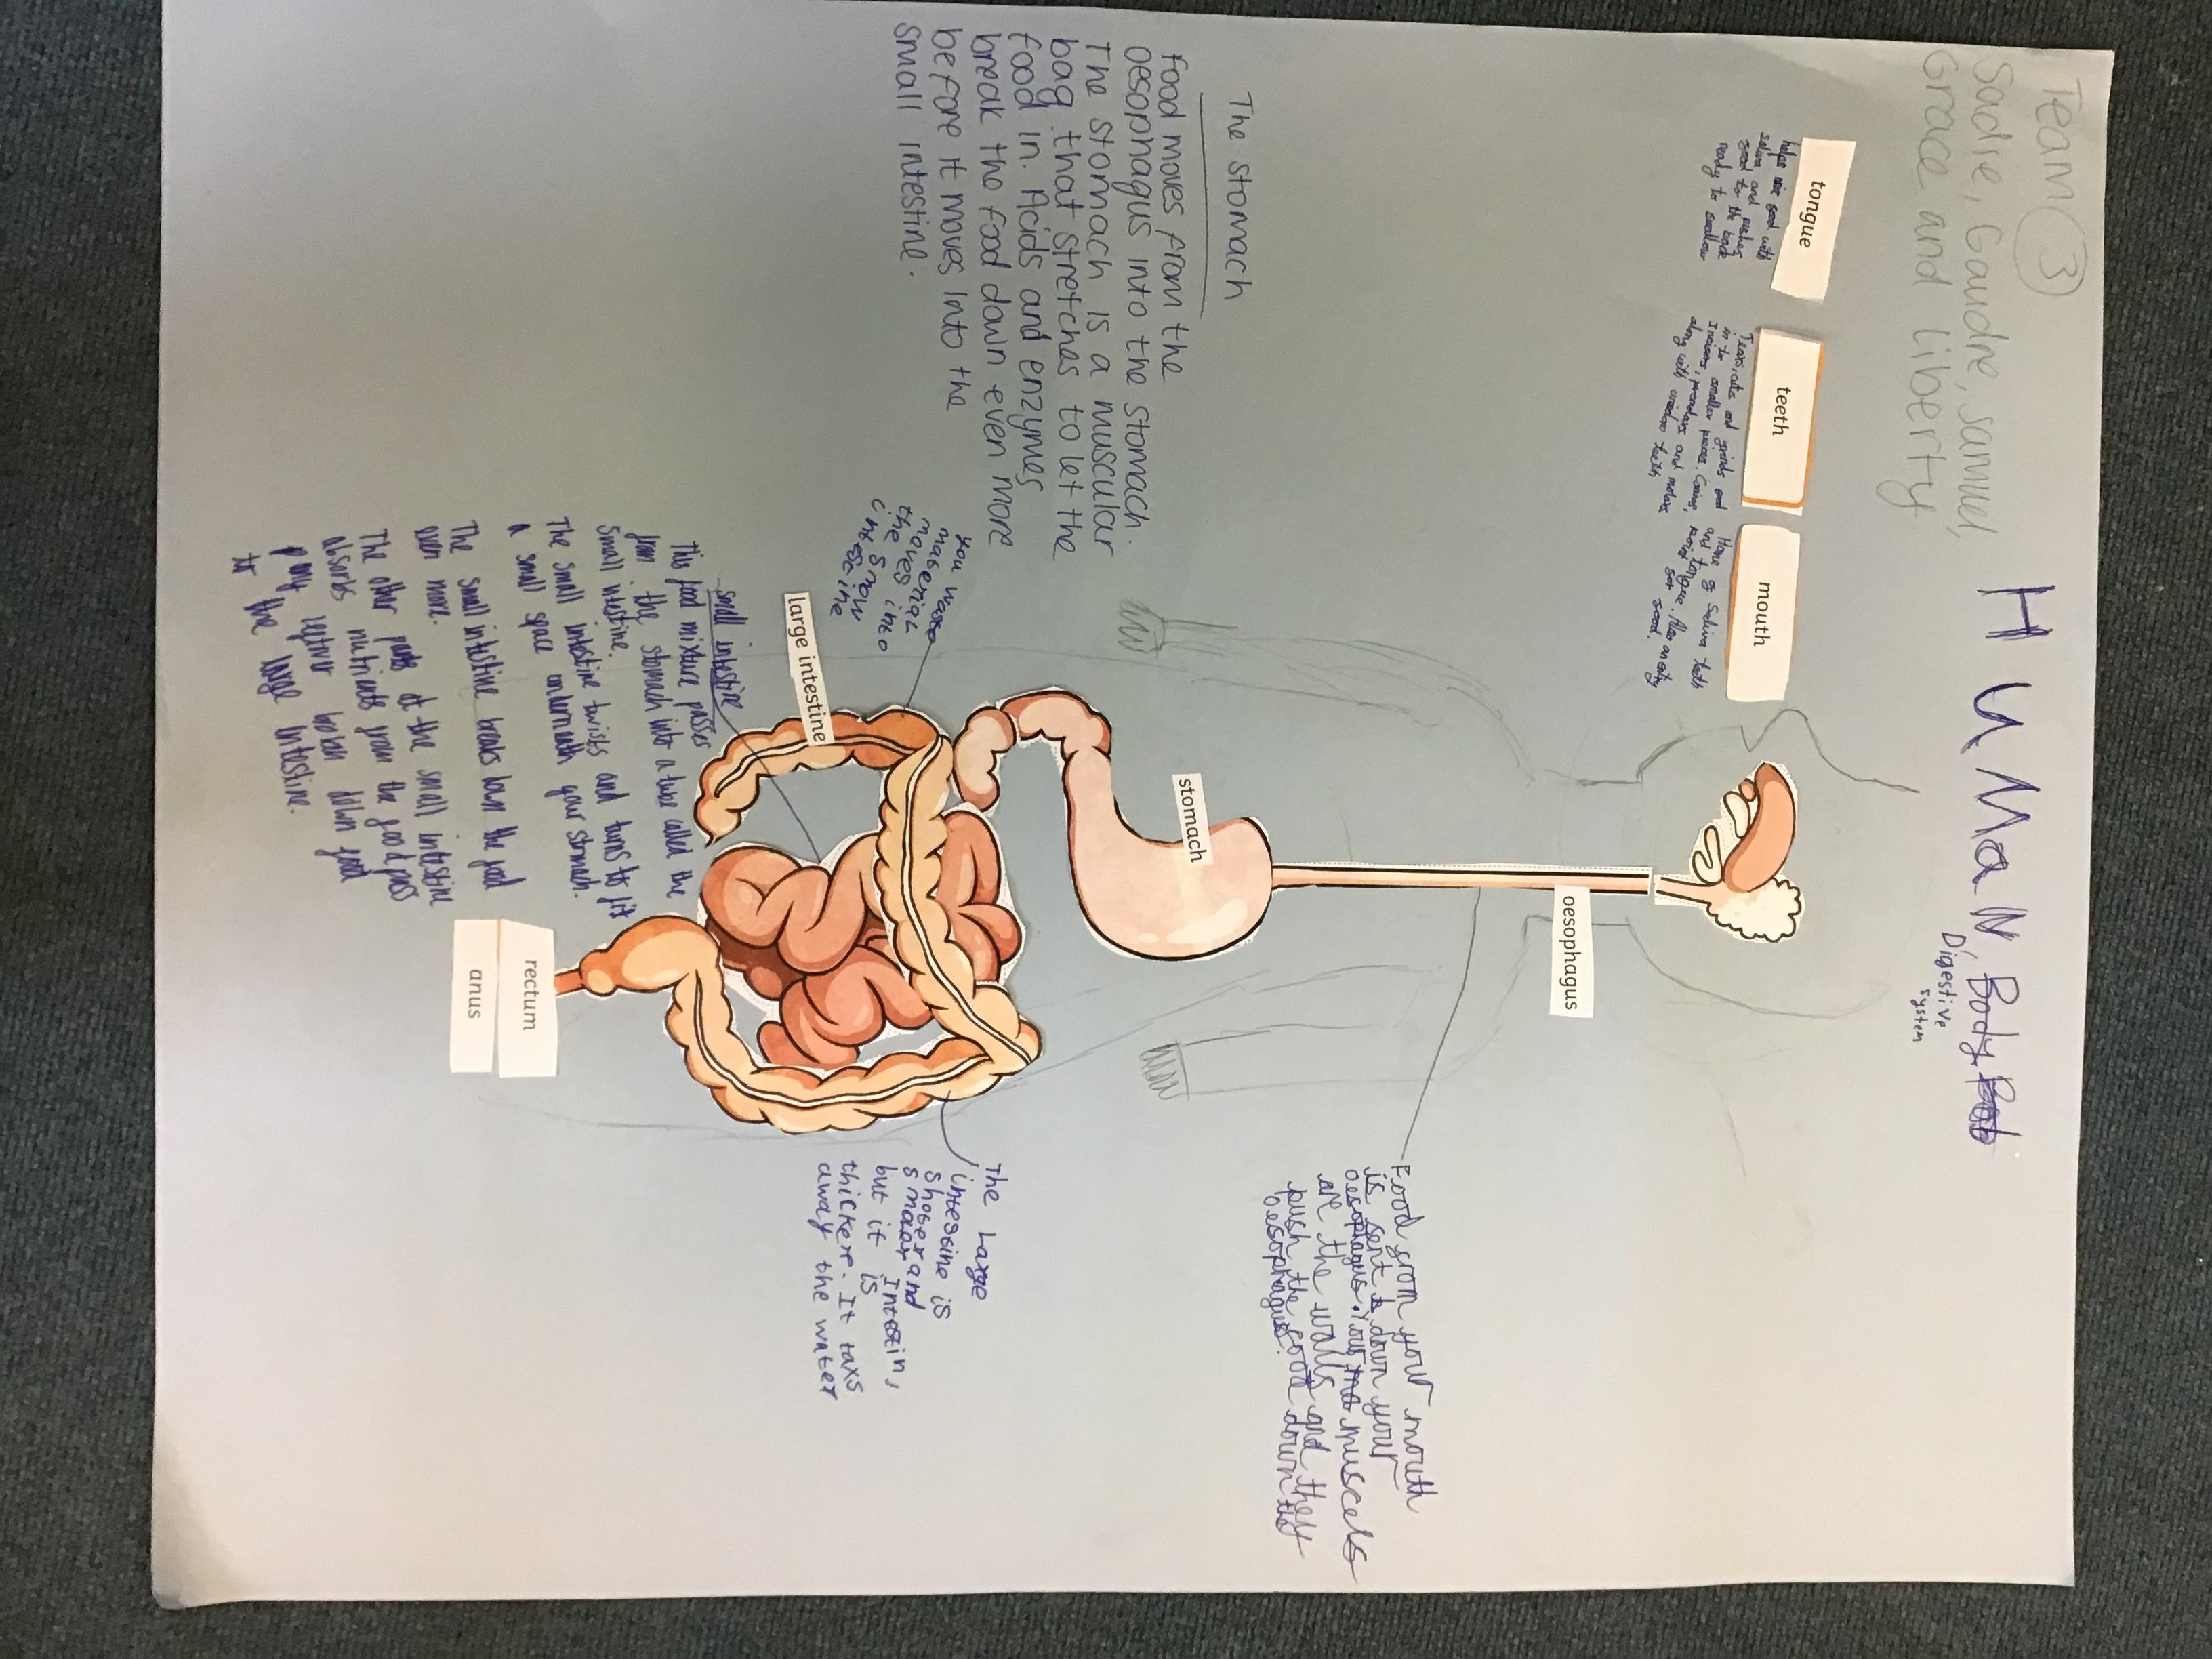 Team 3
Sadie, Gaudre, Samuel,
Grace and liberty
HUMaN, Body,
Digestive
system
tongue
helps mix food with
saliva and pushes
food to the back
ready to swallow
teeth
Tears, cuts and grinds food
in to smaller pieces. Canine,
Incisors, premolars and molars
along with wisdom teeth
mouth
Home of Saliva teeth
and tongue. Also an entry
point for food.
oesophagus
Food from your mouth
is sent down your
oesophagus. Your muscels
are the walls and they
push the food down the
oesophagus.
The stomach
Food moves from the
oesophagus into the stomach.
The stomach is a muscular
bag that stretches to let the
food in. Acids and enzymes
break the food down even more
before it moves into the
small intestine.
stomach
you waste
material
moves into
the
large intestine
The Large
intestine is
shoter and
smoler Intestin,
but it is
thickerr. It taxs
away the water
small intestine
This food mixture passes
from the stomach into a tube called the
small intestine.
The small intestine twists and turns to fit
a small space underneath your stomach.
The small intestine breaks down the food
even more.
The other parts of the small intestine
absorbs nutrients from the food & pass
any leftover broken down food
to the large intestine.
rectum
anus